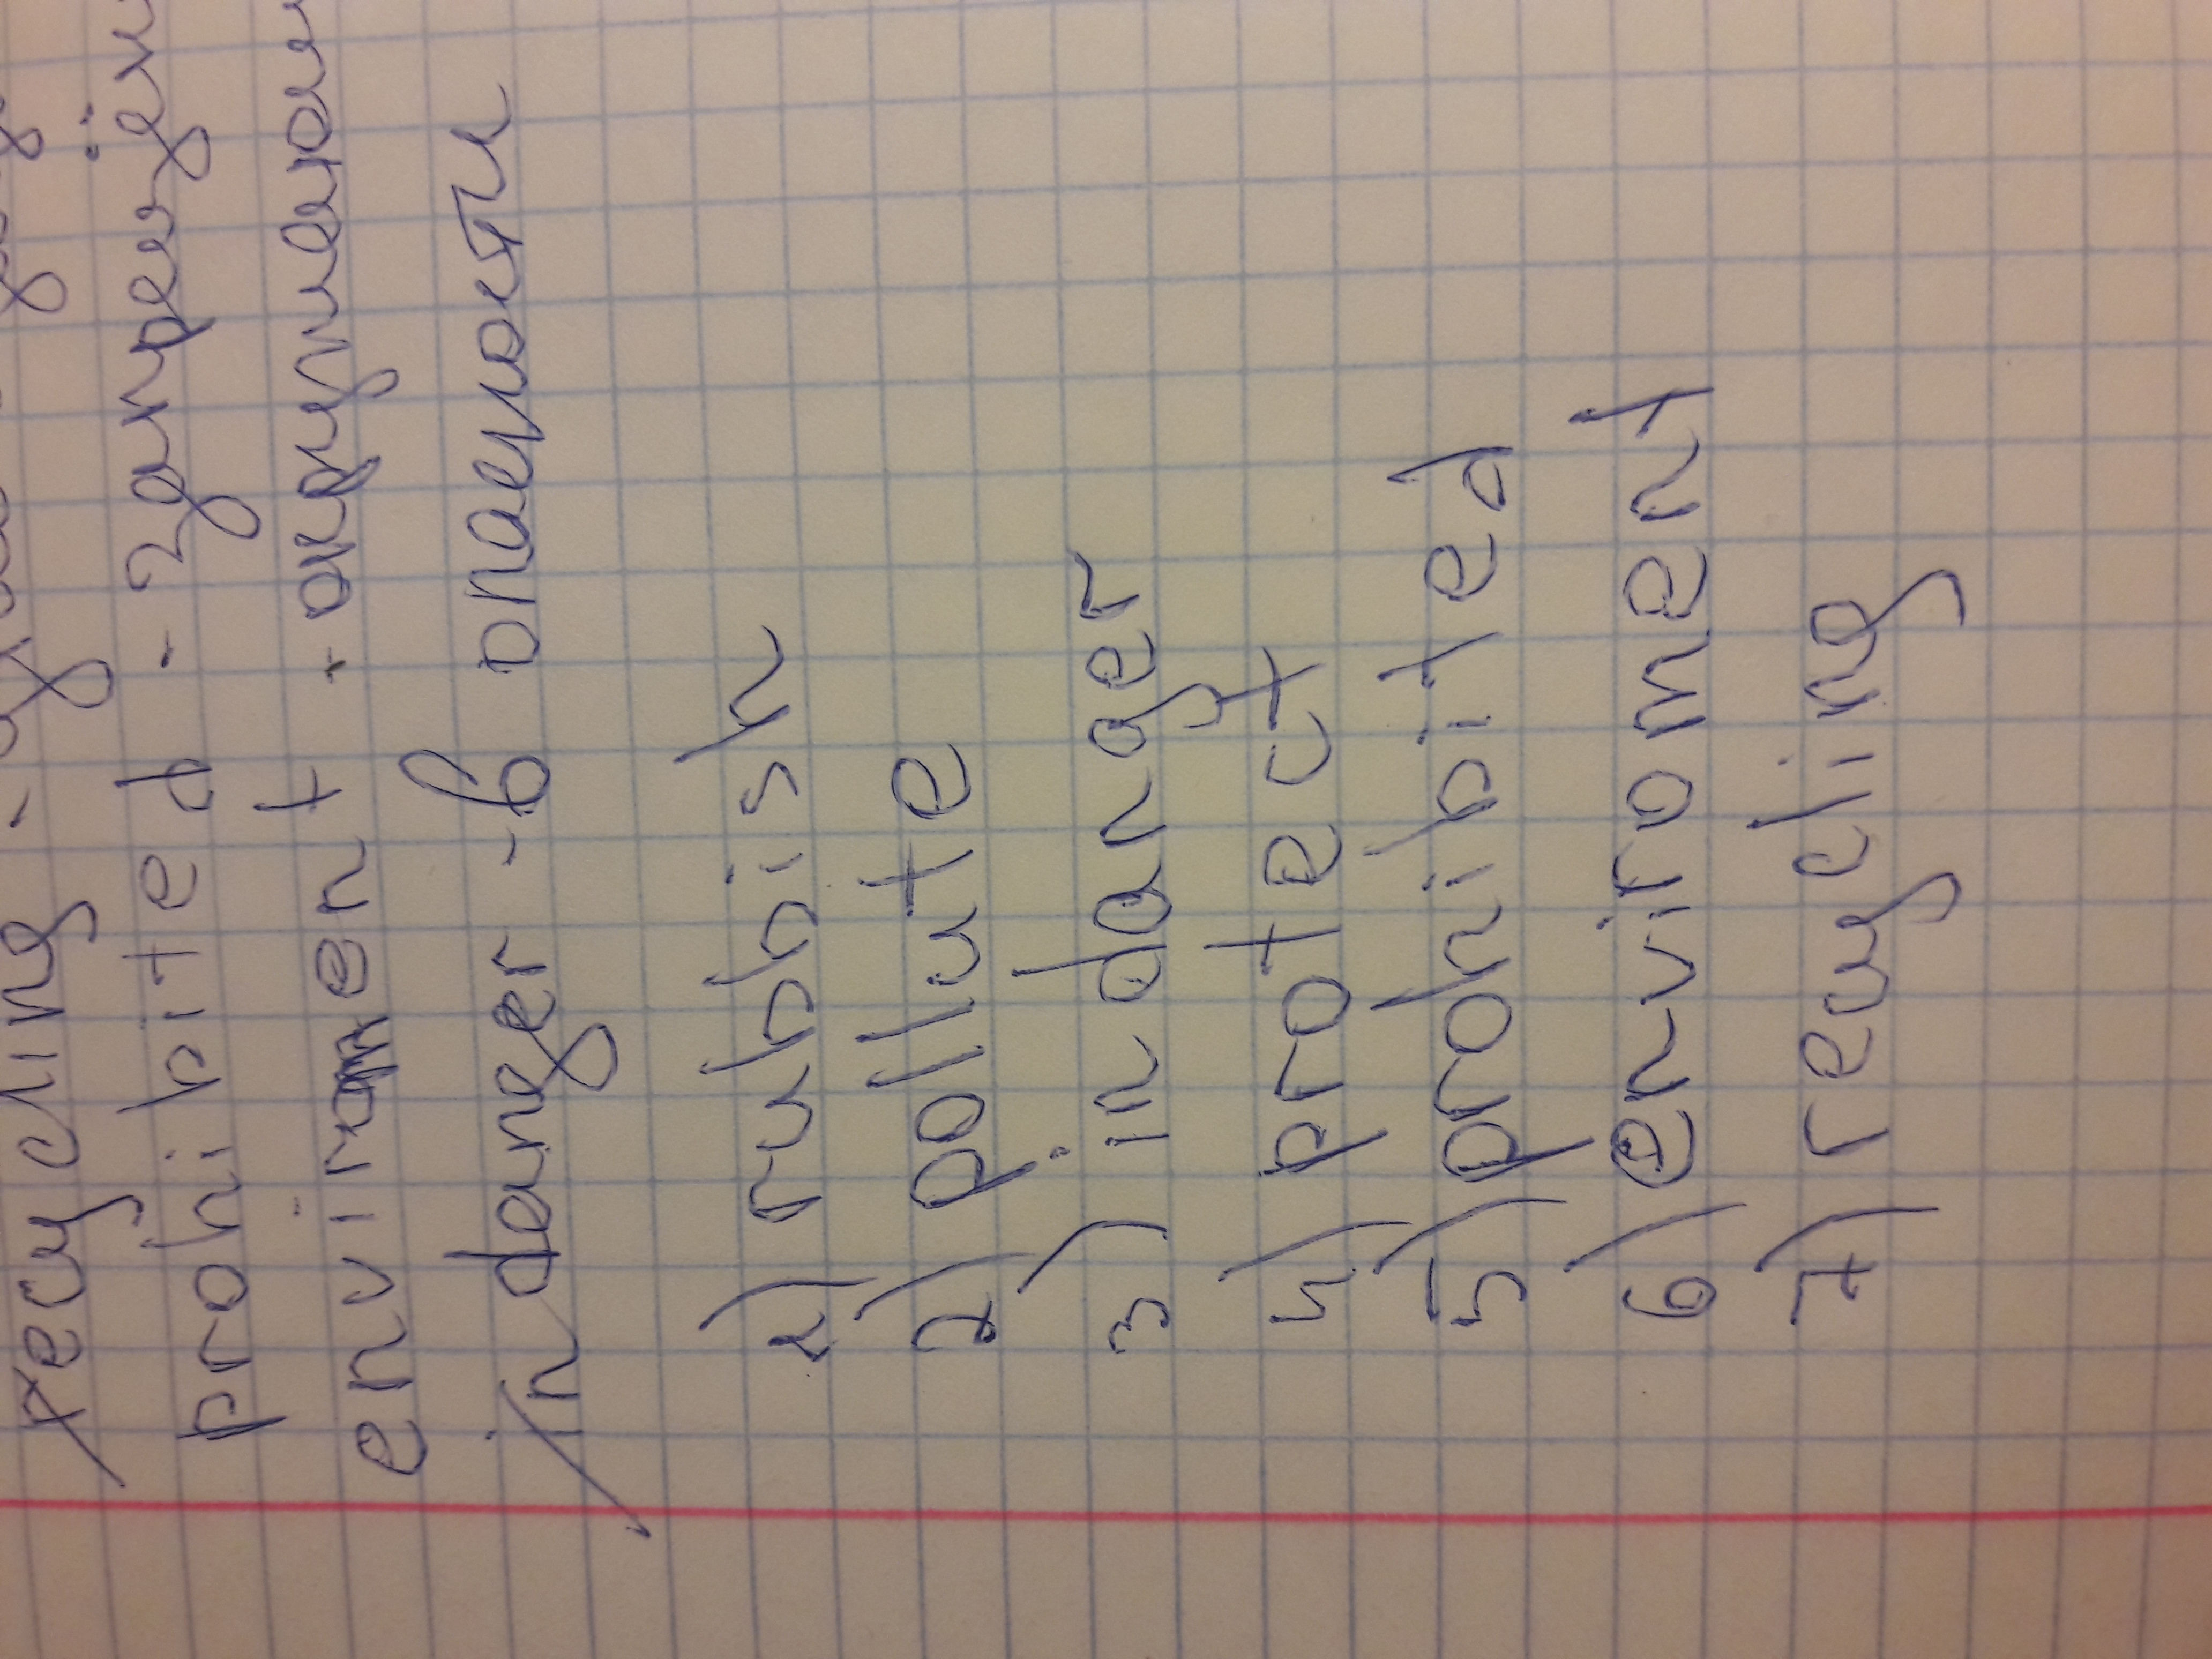 recycling -
prohibited - запрещён
enviroment - окружение
in danger - в опасности
1) rubbish
2) pollute
3) in danger
4) protect
5) prohibited
6) enviroment
7) recycling